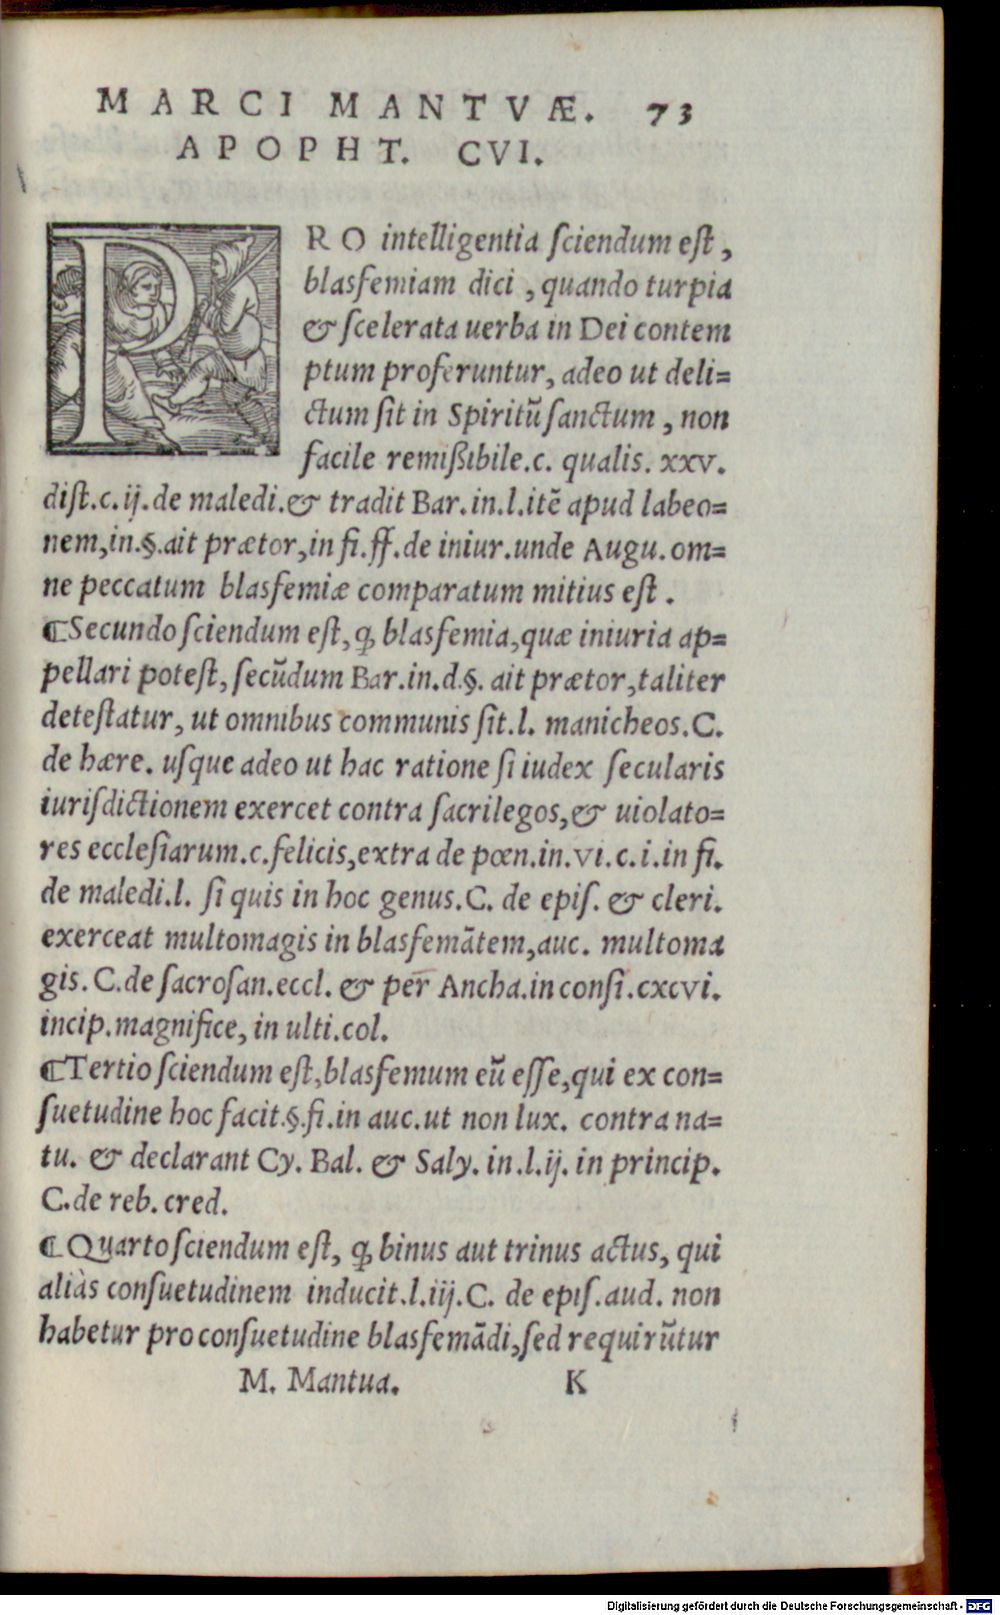 MARCI MANTVÆ. 73
APOPHT. CVI.
PRO intelligentia ſciendum eſt,
blasfemiam dici, quando turpia
& ſcelerata uerba in Dei contem
ptum proferuntur, adeo ut deli=
ctum ſit in Spiritū ſanctum, non
facile remiſsibile.c. qualis. xxv.
diſt.c.ij.de maledi.& tradit Bar.in.l.itē apud labeo=
nem,in.§.ait prætor,in fi.ff.de iniur.unde Augu.om=
ne peccatum blasfemiæ comparatum mitius eſt.
¶Secundo ſciendum eſt, ꝙ blasfemia,quæ iniuria ap=
pellari poteſt, ſecūdum Bar.in.d.§. ait prætor,taliter
deteſtatur, ut omnibus communis ſit.l. manicheos.C.
de hære. uſque adeo ut hac ratione ſi iudex ſecularis
iuriſdictionem exercet contra ſacrilegos,& uiolato=
res eccleſiarum.c.felicis,extra de pœn.in.vi.c.i.in fi.
de maledi.l. ſi quis in hoc genus.C. de epiſ. & cleri.
exerceat multomagis in blasfemātem,auc. multoma
gis.C.de ſacroſan.eccl. & per Ancha.in conſi.cxcvi.
incip.magnifice, in ulti.col.
¶Tertio ſciendum eſt,blasfemum eū eſſe,qui ex con=
ſuetudine hoc facit.§.fi.in auc.ut non lux. contra na=
tu. & declarant Cy. Bal. & Saly. in.l.ij. in princip.
C.de reb.cred.
¶Quarto ſciendum eſt, ꝙ binus aut trinus actus, qui
aliàs conſuetudinem inducit.l.iij.C. de epiſ.aud. non
habetur pro conſuetudine blasfemādi,ſed requirūtur
M. Mantua. K
Digitalisierung gefördert durch die Deutsche Forschungsgemeinschaft - DFG